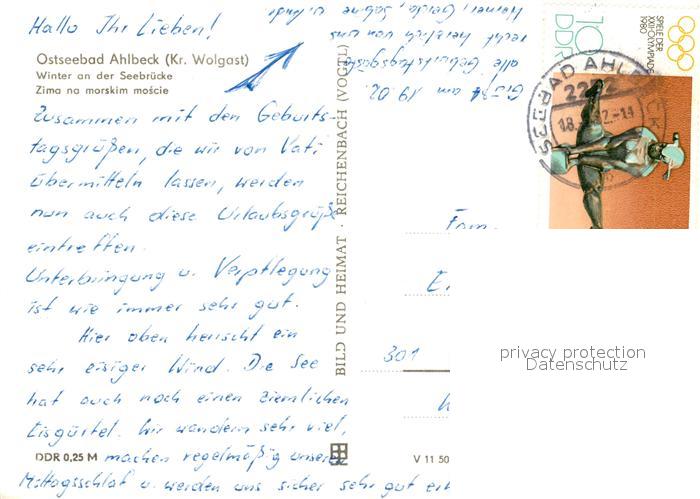 Hallo Ihr Lieben!
Ostseebad Ahlbeck (Kr. Wolgast)
Winter an der Seebrücke
Zima na morskim moście
Zusammen mit den Geburts-
tagsgrüßen, die wir von Vati
übermitteln lassen, werden
nun auch diese Urlaubsgrüße
eintreffen.
Unterbringung u. Verpflegung
ist wie immer sehr gut.
Hier oben herrscht ein
sehr eisiger Wind. Die See
hat auch noch einen ziemlichen
Eisgürtel. Wir wandern sehr viel,
machen regelmäßig unseren
Mittagsschlaf u. werden uns sicher sehr gut erh
DDR 0,25 M
BILD UND HEIMAT · REICHENBACH (VOGTL)
V 11 50
am 19.02.
alle Geburtstagsgrüße
recht herzlich von uns
Gerda, Sabine
10
DDR
SPIELE DER
XXII. OLYMPIADE
1980
SEEBAD AHLBECK
2252
18.
Fam.
E.
301
privacy protection
Datenschutz